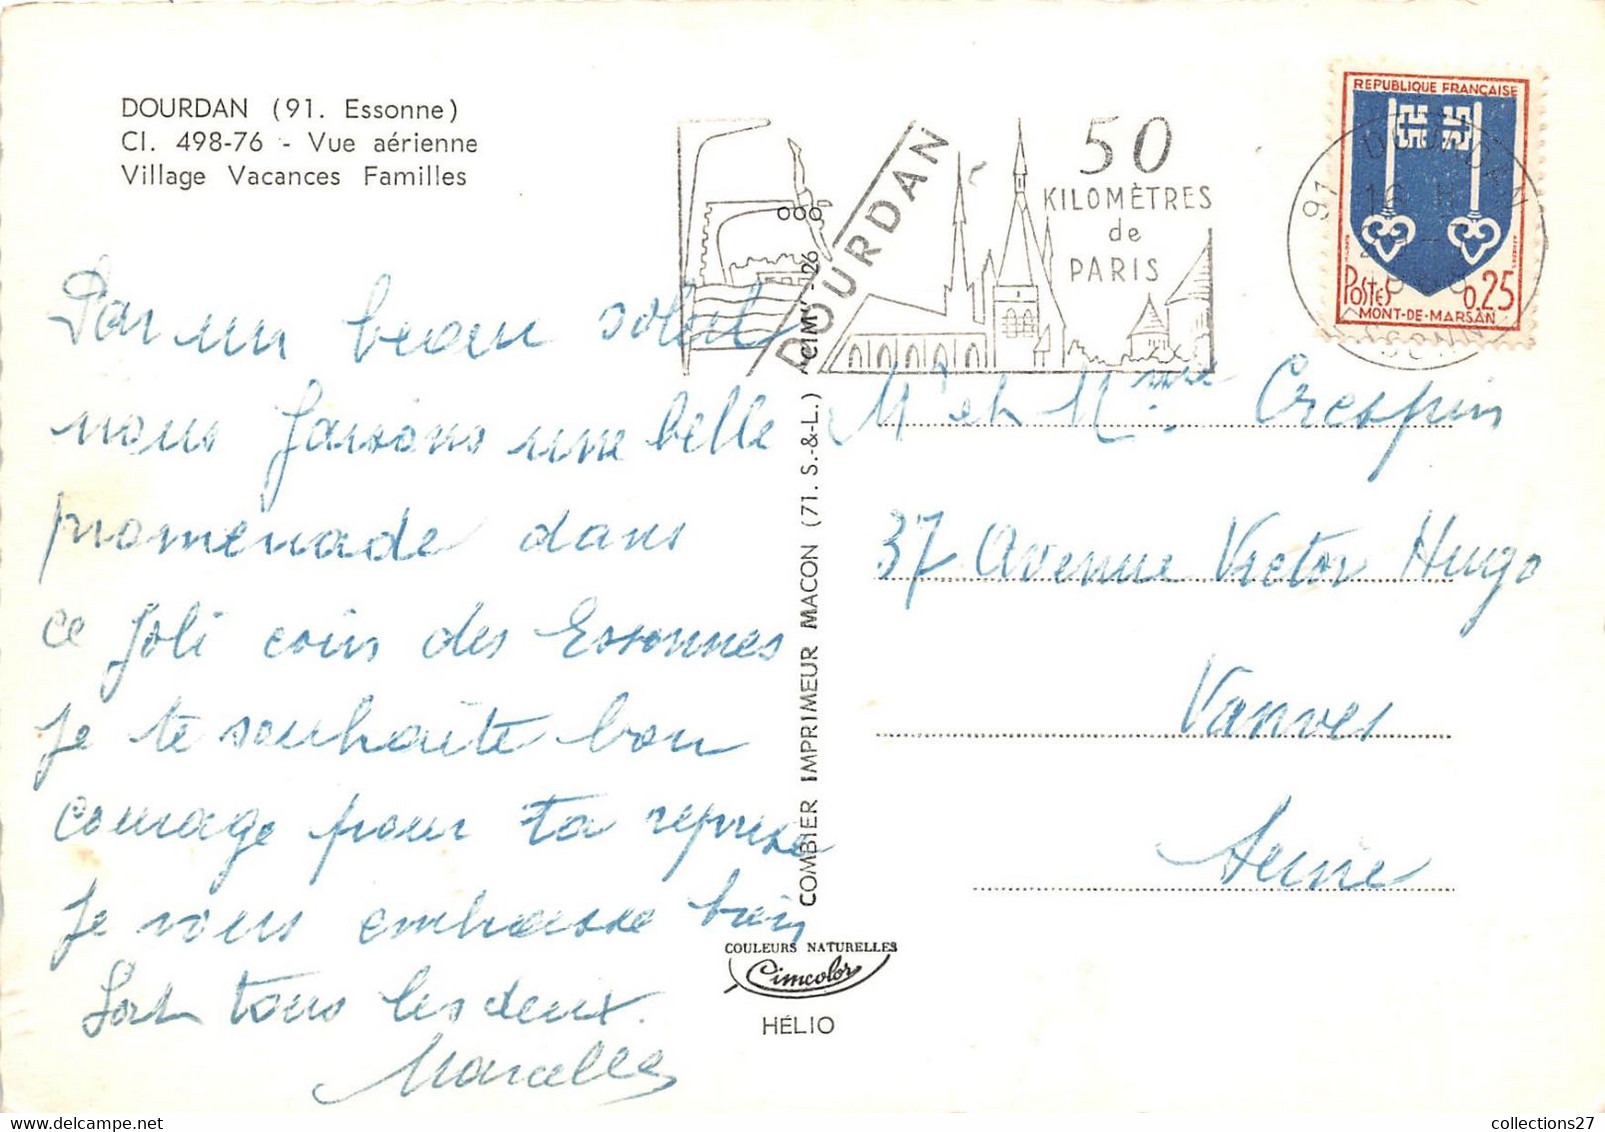 DOURDAN (91. Essonne)
Cl. 498-76 - Vue aérienne
Village Vacances Familles
Par un beau soleil
nous faisons une belle
promenade dans
ce joli coin des Essonnes
je te souhaite bon
courage pour ta reprise
Je vous embrasse bien
fort tous les deux.
Marcelle
COMBIER IMPRIMEUR MACON (71. S.-&-L.) "CIM"
COULEURS NATURELLES
Cimcolor
HÉLIO
DOURDAN
50
KILOMÈTRES
de
PARIS
REPUBLIQUE FRANÇAISE
POSTES 0,25
MONT-DE-MARSAN
91 DOURDAN
16 H
ESSONNE
Mr et Mme Crespin
37 Avenue Victor Hugo
Vanves
Seine
delcampe.net
collections27